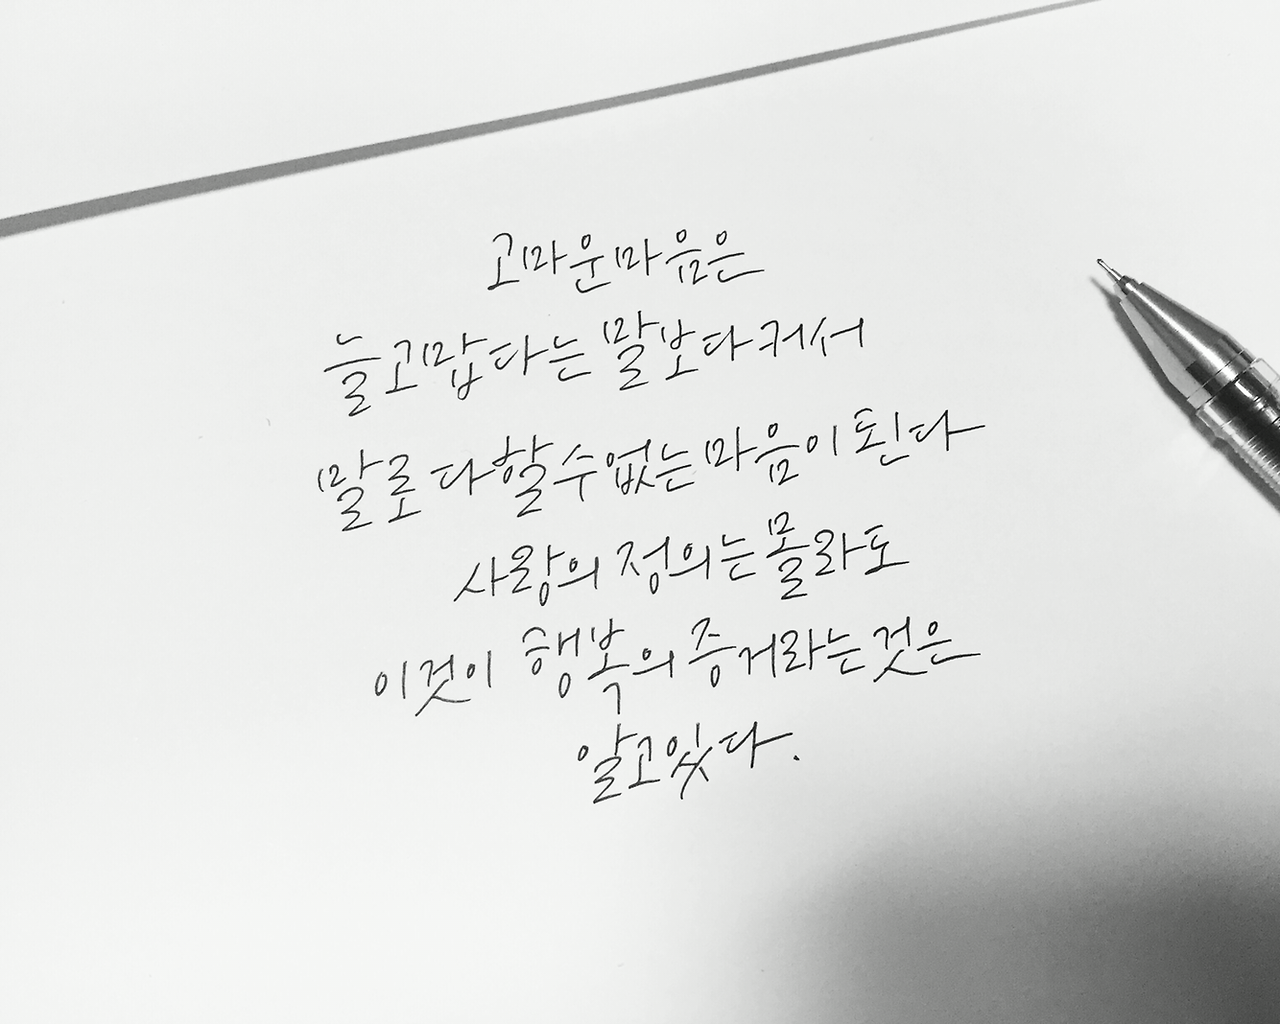 고마운 마음은
늘 고맙다는 말보다 커서
말로 다 할 수 없는 마음이 된다
사랑의 정의는 몰라도
이것이 행복의 증거라는 것은
알고 있다.